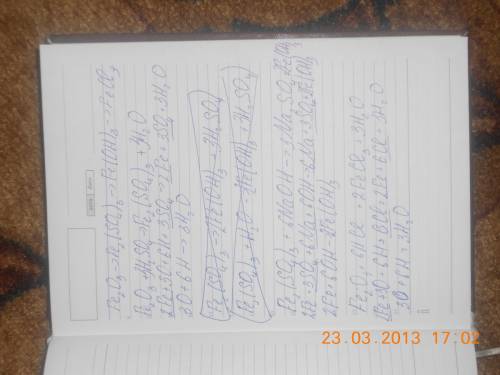 Fe₂O₃→Fe₂(SO₄)₃→Fe(OH)₃→FeCl₃
Fe₂O₃+3H₂SO₄→Fe₂(SO₄)₃+3H₂O
2Fe+3O+6H+3SO₄→2Fe+3SO₄+3H₂O
3O+6H→3H₂O
Fe₂(SO₄)₃→2Fe(OH)₃+3H₂SO₄
Fe₂(SO₄)₃+H₂O→2Fe(OH)₃+3H₂SO₄
Fe₂(SO₄)₃+6NaOH→3Na₂SO₄+2Fe(OH)₃
2Fe+3SO₄+6Na+6OH→6Na+3SO₄+2Fe(OH)₃
2Fe+6OH→2Fe(OH)₃
Fe₂O₃+6HCl→2FeCl₃+3H₂O
2Fe+3O+6H+6Cl→2Fe+6Cl+3H₂O
3O+6H→3H₂O
23.03.2013 17:02